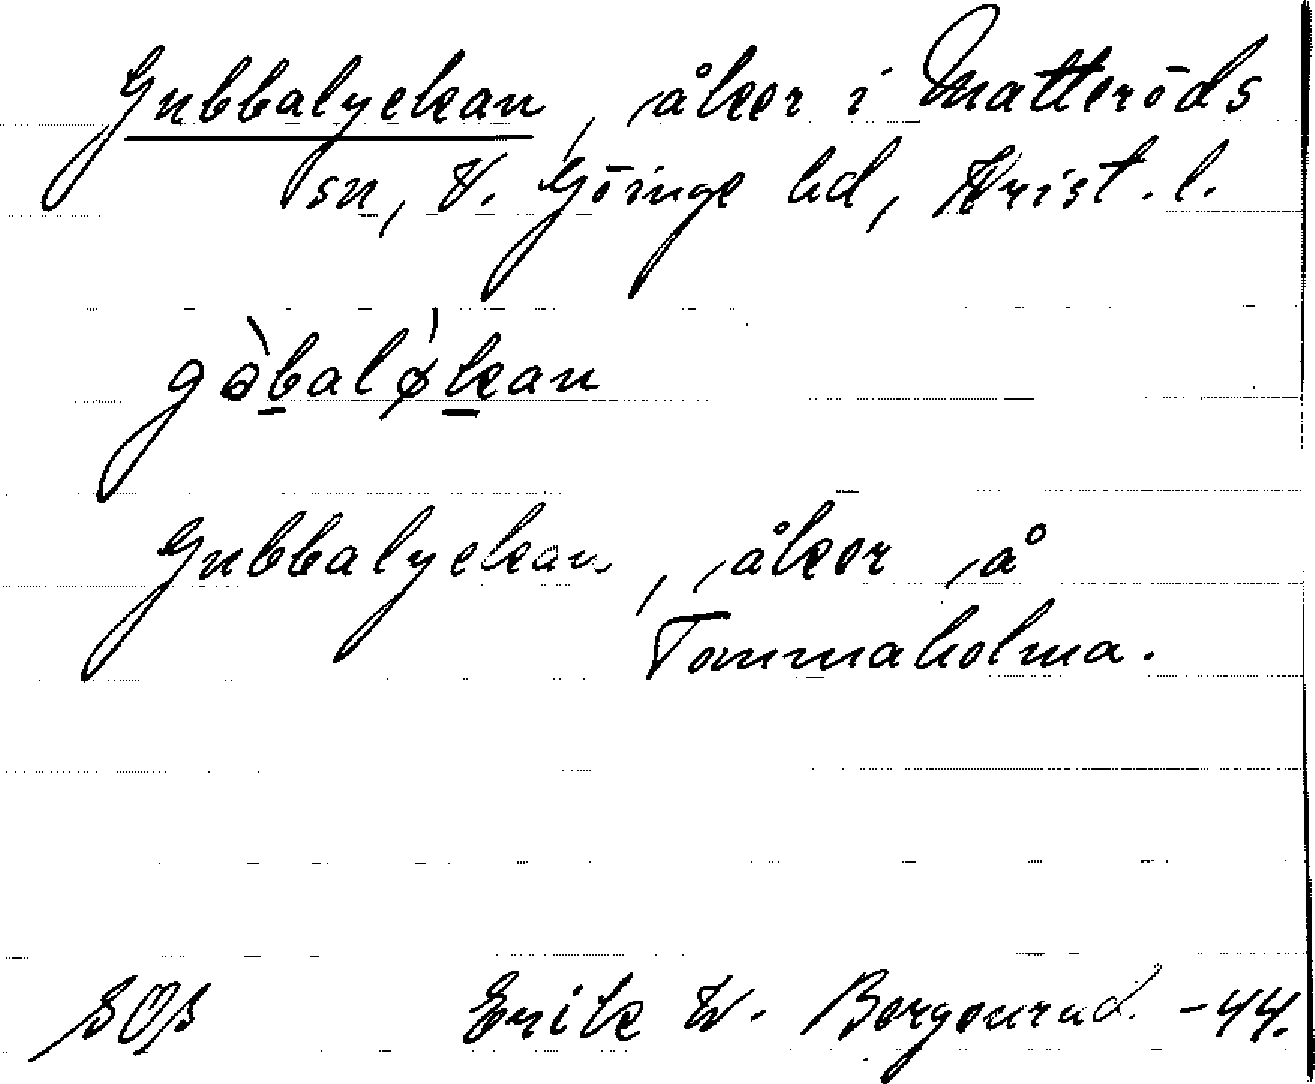 Gubbalyckan, åker i Matteröds
sn, V. Göinge hd, Krist. l.
gə̀balǿkan
Gubbalyckan, åker å
Tommaholma.
SOS Erik W. Bergenrud. -44.